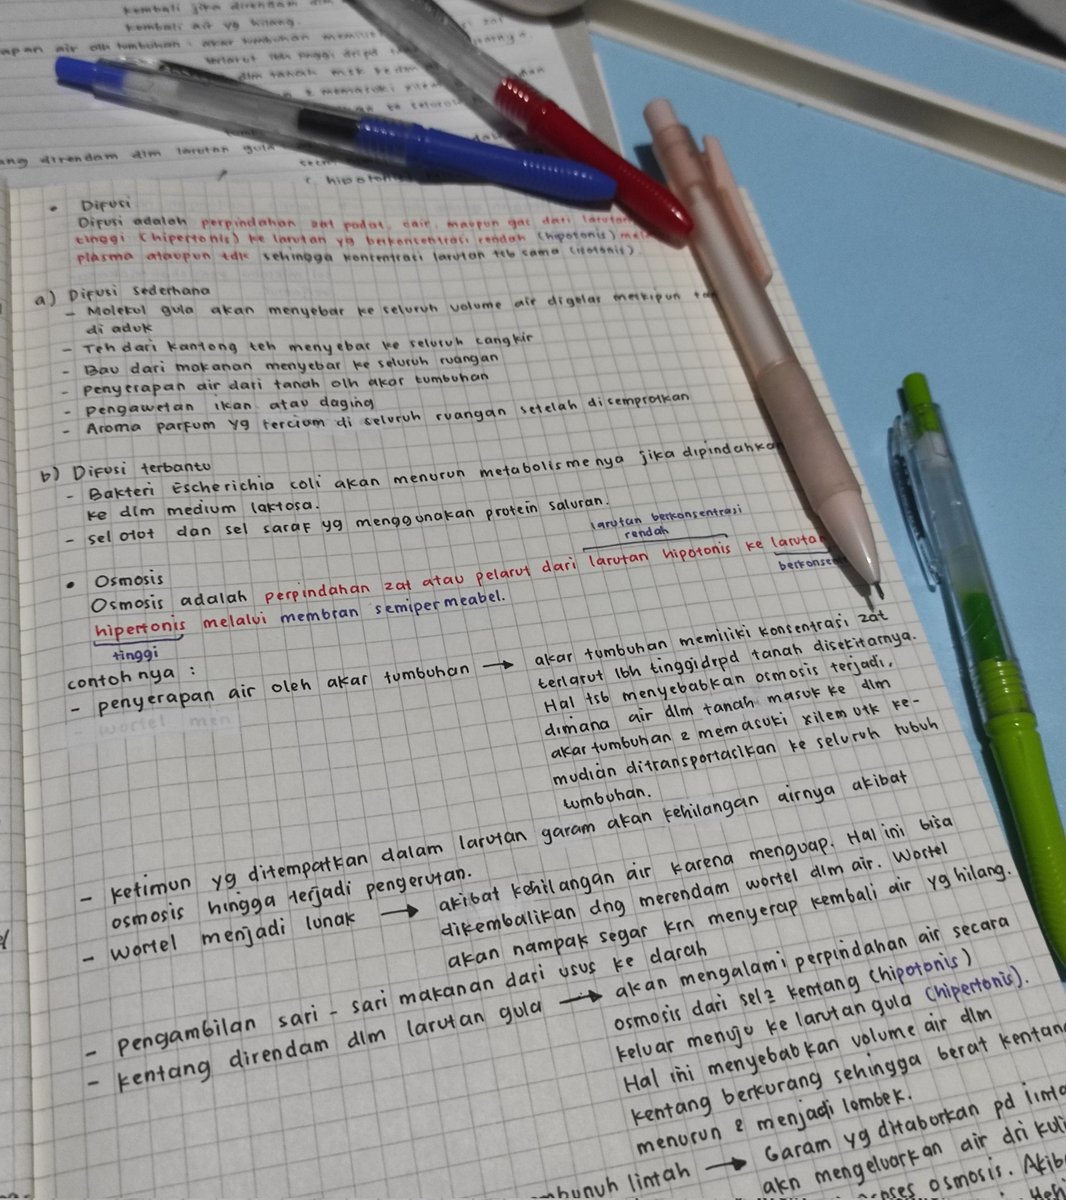 kembali jika direndam dlm
kembali air yg hilang.
apan air olh tumbuhan : akar tumbuhan
terlarut lbh tinggi drpd
dlm tanah msk ke dlm
& memasuki
ke seluruh
ang direndam dlm larutan gula
• Difusi
Difusi adalah perpindahan zat padat, cair, maupun gas dari larutan
tinggi (hipertonis) ke larutan yg berkonsentrasi rendah (hipotonis)
plasma ataupun tdk sehingga konsentrasi larutan tsb sama (isotonis).
a) Difusi sederhana
- Molekul gula akan menyebar ke seluruh volume air digelas meskipun
di aduk
- Teh dari kantong teh menyebar ke seluruh cangkir
- Bau dari makanan menyebar ke seluruh ruangan
- Penyerapan air dari tanah olh akar tumbuhan
- Pengawetan ikan atau daging
- Aroma parfum yg tercium di seluruh ruangan setelah disemprotkan
b) Difusi terbantu
- Bakteri Escherichia coli akan menurun metabolismenya jika dipindahkan
ke dlm medium laktosa.
- sel otot dan sel saraf yg menggunakan protein saluran.
larutan berkonsentrasi
rendah
• Osmosis
Osmosis adalah perpindahan zat atau pelarut dari larutan hipotonis ke larutan
berkonsen
hipertonis melalui membran semipermeabel.
tinggi
contohnya :
- penyerapan air oleh akar tumbuhan → akar tumbuhan memiliki konsentrasi zat
terlarut lbh tinggi drpd tanah disekitarnya.
Hal tsb menyebabkan osmosis terjadi,
dimana air dlm tanah masuk ke dlm
akar tumbuhan & memasuki xilem utk ke-
mudian ditransportasikan ke seluruh tubuh
tumbuhan.
wortel men
- ketimun yg ditempatkan dalam larutan garam akan kehilangan airnya akibat
osmosis hingga terjadi pengerutan.
- wortel menjadi lunak → akibat kehilangan air karena menguap. Hal ini bisa
dikembalikan dng merendam wortel dlm air. Wortel
akan nampak segar krn menyerap kembali air yg hilang.
- pengambilan sari-sari makanan dari usus ke darah
- kentang direndam dlm larutan gula → akan mengalami perpindahan air secara
osmosis dari sel2 kentang (hipotonis)
keluar menuju ke larutan gula (hipertonis).
Hal ini menyebabkan volume air dlm
kentang berkurang sehingga berat kentang
menurun & menjadi lembek.
mbunuh lintah → Garam yg ditaburkan pd linta
akn mengeluarkan air dri kuli
proses osmosis. Akib